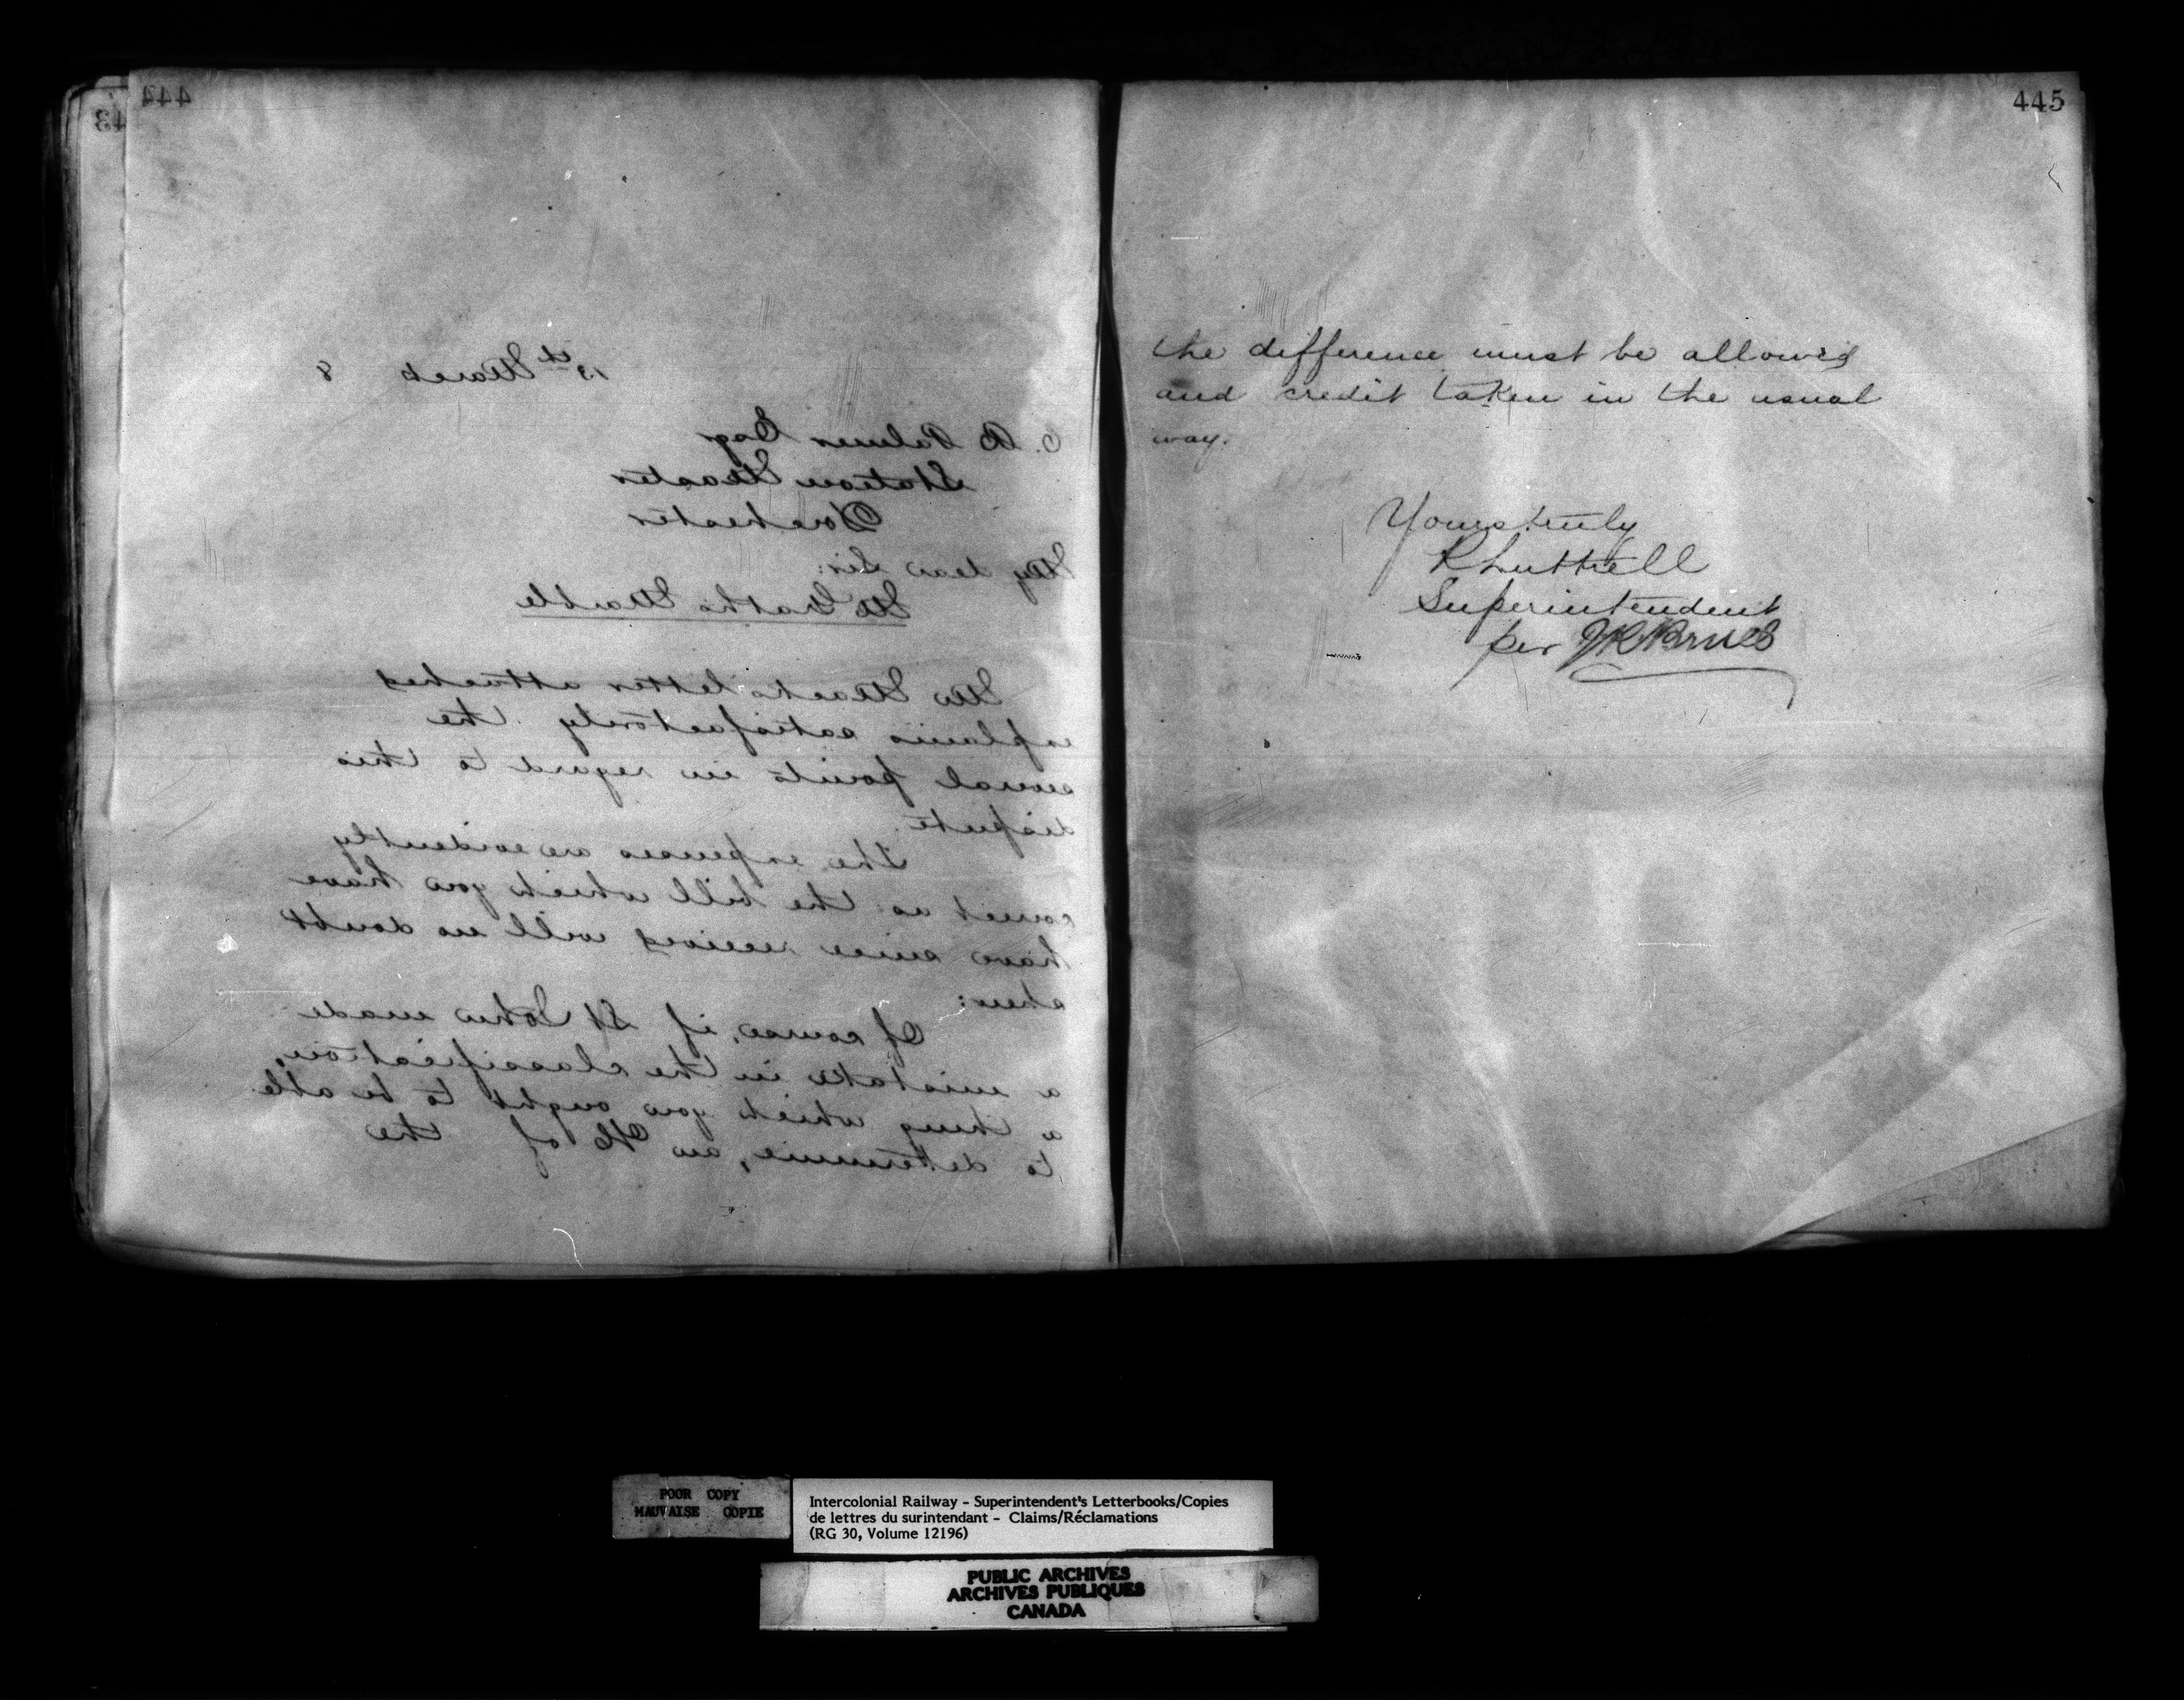 444
13th March 8
C. B Palmer Esq
Station Master
Dorchester
My dear Sir:
McGrath's Marble
Mr letter attached
explains satisfactorily the
several points in regard to this
dispute.
The expenses are evidently
correct as the bill which you have
have since received will no doubt
shew:
Of course, if St John made
a mistake in the classification,
a thing which you ought to be able
to determine, an of the
445
the difference must be allowed
and credit taken in the usual
way.
Yours truly
R Luttrell
Superintendent
per J R Bruce
POOR COPY
MAUVAISE COPIE
Intercolonial Railway - Superintendent's Letterbooks/Copies
de lettres du surintendant - Claims/Réclamations
(RG 30, Volume 12196)
PUBLIC ARCHIVES
ARCHIVES PUBLIQUES
CANADA